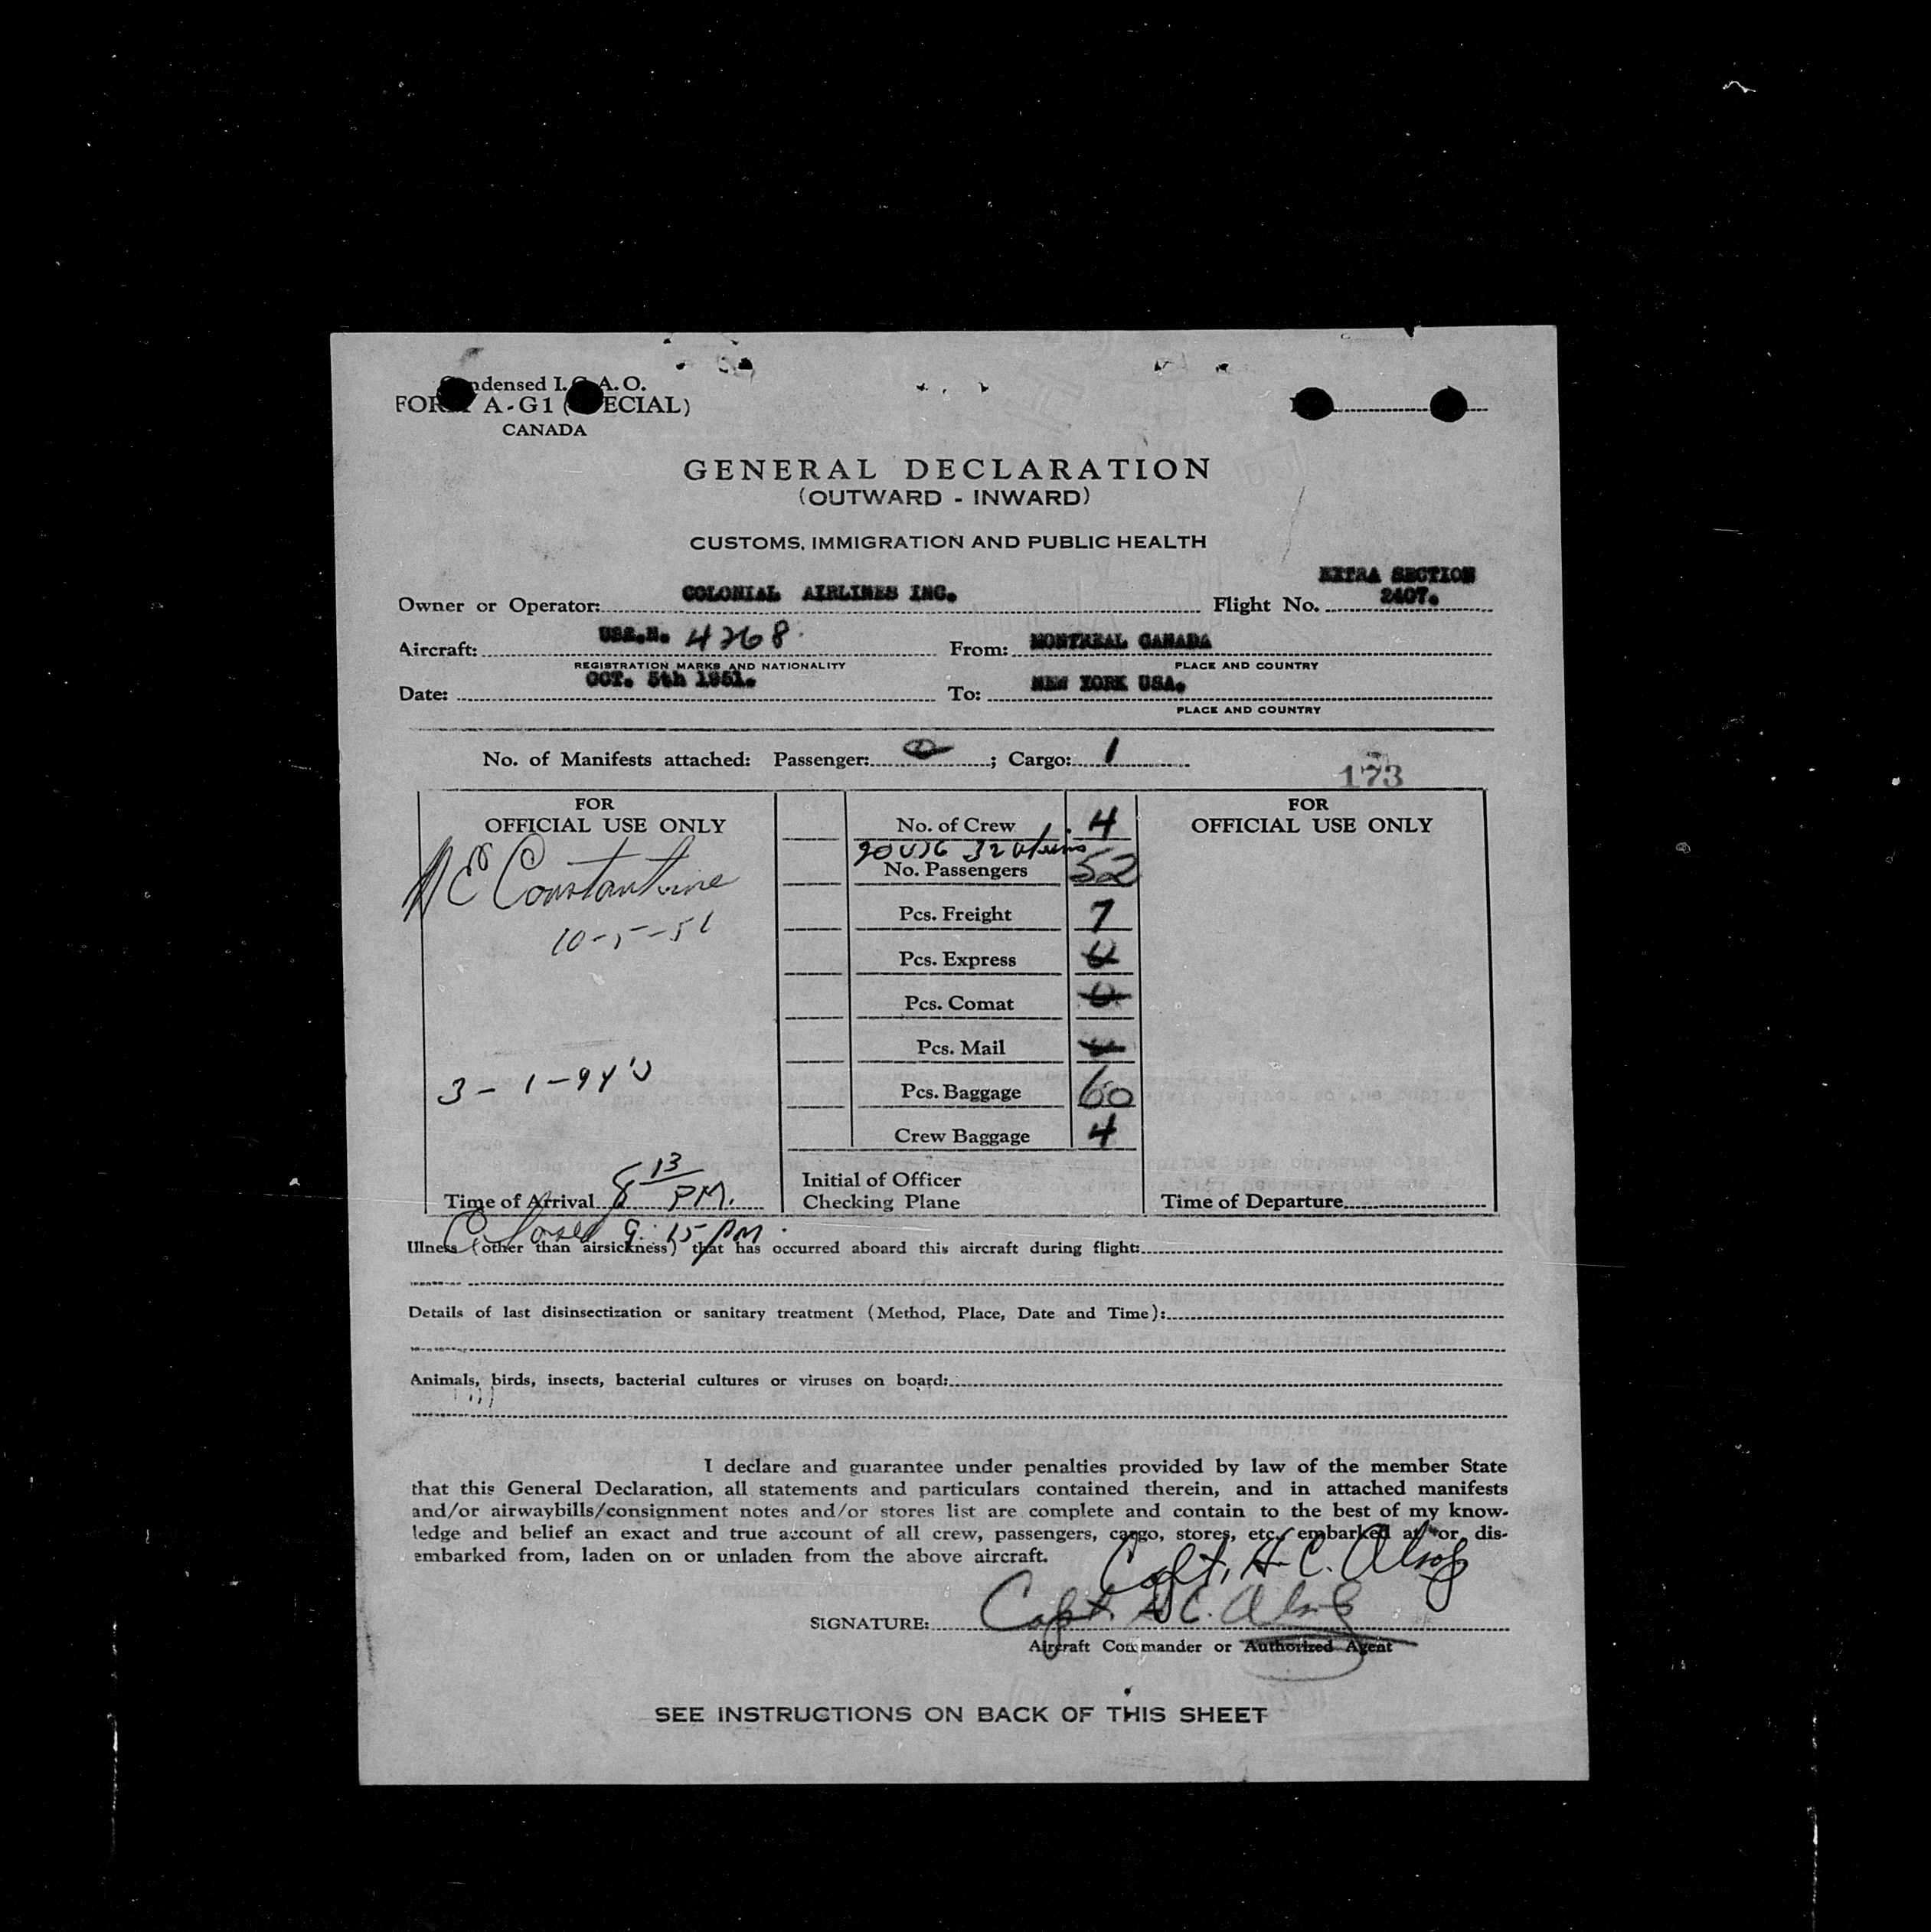 Condensed I.C.A.O.
FORM A-G1 (SPECIAL)
CANADA
GENERAL DECLARATION
(OUTWARD - INWARD)
CUSTOMS, IMMIGRATION AND PUBLIC HEALTH
EXTRA SECTION
Owner or Operator: COLONIAL AIRLINES INC. Flight No. 2407.
Aircraft: USA.N. 4268. From: MONTREAL CANADA
REGISTRATION MARKS AND NATIONALITY PLACE AND COUNTRY
Date: OCT. 5th 1951. To: NEW YORK USA.
PLACE AND COUNTRY
No. of Manifests attached: Passenger: 0 ; Cargo: 1
173
FOR
OFFICIAL USE ONLY
E Constantine
10-5-51
3-1-94
Time of Arrival 8 13 PM.
Closed 9:15 PM.
No. of Crew 4
20 USC 32 aliens
No. Passengers 52
Pcs. Freight 7
Pcs. Express 0
Pcs. Comat 0
Pcs. Mail 0
Pcs. Baggage 60
Crew Baggage 4
Initial of Officer
Checking Plane
FOR
OFFICIAL USE ONLY
Time of Departure
Illness (other than airsickness) that has occurred aboard this aircraft during flight:
Details of last disinsectization or sanitary treatment (Method, Place, Date and Time):
Animals, birds, insects, bacterial cultures or viruses on board:
I declare and guarantee under penalties provided by law of the member State
that this General Declaration, all statements and particulars contained therein, and in attached manifests
and/or airwaybills/consignment notes and/or stores list are complete and contain to the best of my know-
ledge and belief an exact and true account of all crew, passengers, cargo, stores, etc. embarked at or dis-
embarked from, laden on or unladen from the above aircraft.
Capt. H. C. Alsop
SIGNATURE: Capt. H C. Alsop
Aircraft Commander or Authorized Agent
SEE INSTRUCTIONS ON BACK OF THIS SHEET